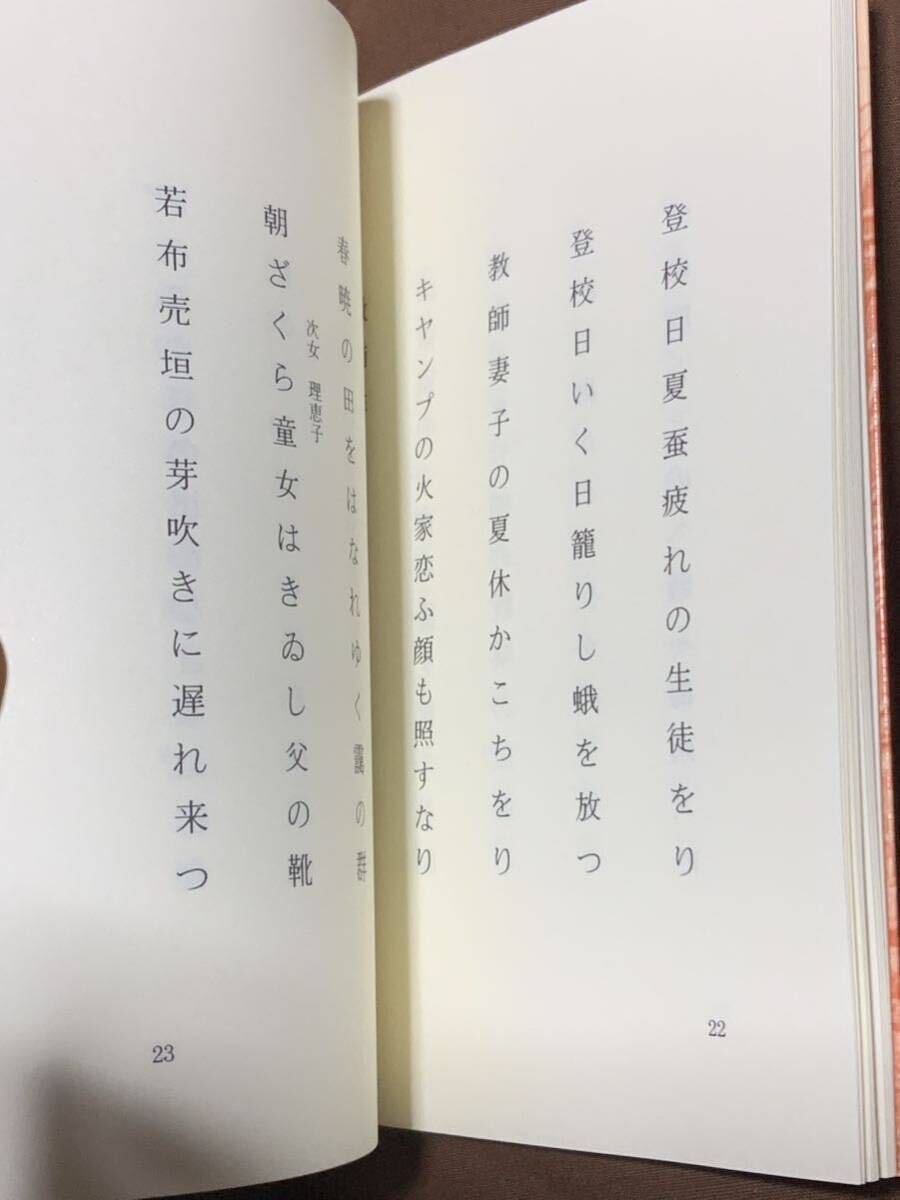 登校日夏蚕疲れの生徒をり
登校日いく日籠りし蛾を放つ
教師妻子の夏休かこちをり
キヤンプの火家恋ふ顔も照すなり
22
春暁の田をはなれゆく靄の群
次女 理恵子
朝ざくら童女はきゐし父の靴
若布売垣の芽吹きに遅れ来つ
23